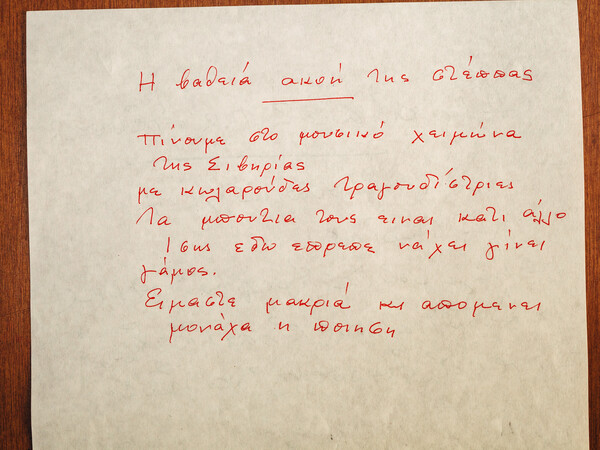 Η βαθειά ακοή της στέππας
Πίνουμε στο μουσικό χειμώνα
της Σιβηρίας
με κωλαρούδες τραγουδίστριες
Τα μπούτια τους ειναι κατι άλλο
Ισως εδω επρεπε νάχει γίνει
γάμος.
Ειμαστε μακριά κι απομενει
μονάχα η ποιηση